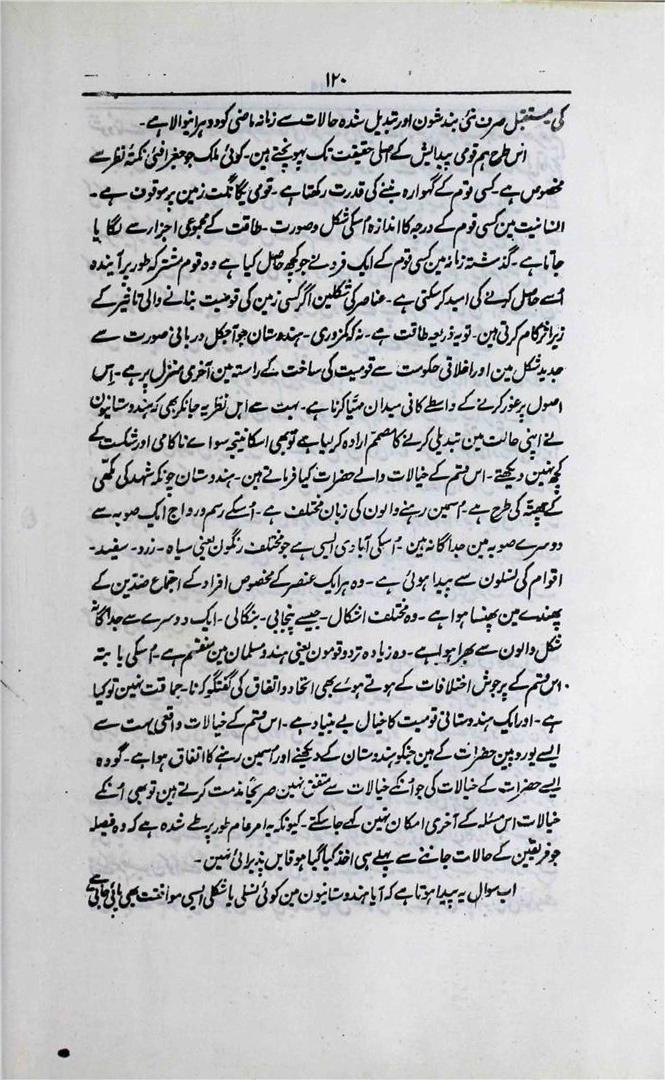 ۱۲۰
کی مستقبل صرف نئی بندشون اور تبدیل شدہ حالات سے زمانہ ماضی کو دوہرانیوالا ہے۔
اس طرح ہم قومی پیدایش کے اصلی حقیقت تک پہونچتے ہین۔ کوئی ملک جو جغرافئی نکتۂ نظر سے
مخصوص ہے۔ کسی قوم کے گہوارہ بننے کی قدرت رکھتا ہے۔ قومی یگانگت زمین پر موقوف ہے۔
انسانیت مین کسی قوم کے درجہ کا اندازہ اُسکی شکل و صورت۔ طاقت کے مجموعی اجزار سے لگایا
جاتا ہے۔ گذشتہ زمانہ مین کسی قوم کے ایک فرد نے جو کچھ حاصل کیا ہے وہ قوم مشترکہ طور پر آیندہ
اُسے حاصل کرنے کی امید کرسکتی ہے۔ عناصر کی شکلین اگر کسی زمین کی قومیت بنانے والی تاثیر کے
زیر اثر کام کرتی ہین۔ تو یہ ذریعہ طاقت ہے۔ نہ کہ کمزوری۔ ہندوستان جو آجکل درباہٰی صورت سے
جدید شکل مین اور اخلاقی حکومت سے قومیت کی ساخت کے راستہ مین آخری منزل پر ہے۔ اِس
اصول پر غور کرنے کے واسطے کافی میدان مہیا کرتا ہے۔ بہت سے اہل نظر یہ جانکر بھی کہ ہندوستانیون
نے اپنی حالت مین تبدیلی کرنے کا مصمم ارادہ کرلیا ہے تو بھی اسکا نتیجہ سواے ناکامی اور شکست کے
کچھ نہین دیکھتے۔ اس قسم کے خیالات والے حضرات کیا فرماتے ہین۔ ہندوستان چونکہ شہد کی مکھی
کے چھتّہ کی طرح ہے۔ اسمین رہنے والون کی زبان مختلف ہے۔ اُسکے رسم و رواج ایک صوبہ سے
دوسرے صوبہ مین جداگانہ ہین۔ اُسکی آبادی ایسی ہے جو مختلف رنگون یعنی سیاہ۔ زرد۔ سفید۔
اقوام کی نسلون سے پیدا ہوئی ہے۔ وہ ہر ایک عنصر کے مخصوص افراد کے اجتماع ضدین کے
پھندے مین پھنسا ہوا ہے۔ وہ مختلف اشکال۔ جیسے پنجابی۔ بنگالی۔ ایک دوسرے سے جداگانہ
شکل والون سے بھرا ہوا ہے۔ وہ زیادہ تر دو قومون یعنی ہندو مسلمان مین منقسم ہے۔ اُسکی بابتہ
اس قسم کے پرجوش اختلافات کے ہوتے ہوئے بھی اتحاد و اتفاق کی گفتگو کرنا۔ حماقت نہین تو کیا
ہے۔ اور ایک ہندوستانی قومیت کا خیال بے بنیاد ہے۔ اس قسم کے خیالات واقعی بہت سے
ایسے یوروپین حضرات کے ہین جنکو ہندوستان کے دیکھنے اور اسمین رہنے کا اتفاق ہوا ہے۔ گو وہ
ایسے حضرات کے خیالات کی جو اُنکے خیالات سے متفق نہین صریحًا مذمت کرتے ہین تو بھی اُنکے
خیالات اس مسئلہ کے آخری امکان نہین کہے جا سکتے۔ کیونکہ یہ امر عام طور پر طے شدہ ہے کہ وہ فیصلہ
جو فریقین کے حالات جاننے سے پہلے ہی اخذ کیا گیا ہو قابل پذیرائی نہین۔
اب سوال یہ پیدا ہوتا ہے کہ آیا ہندوستانیون مین کوئی نسلی یا شکلی ایسی موافقت بھی پائی جاتی ہے